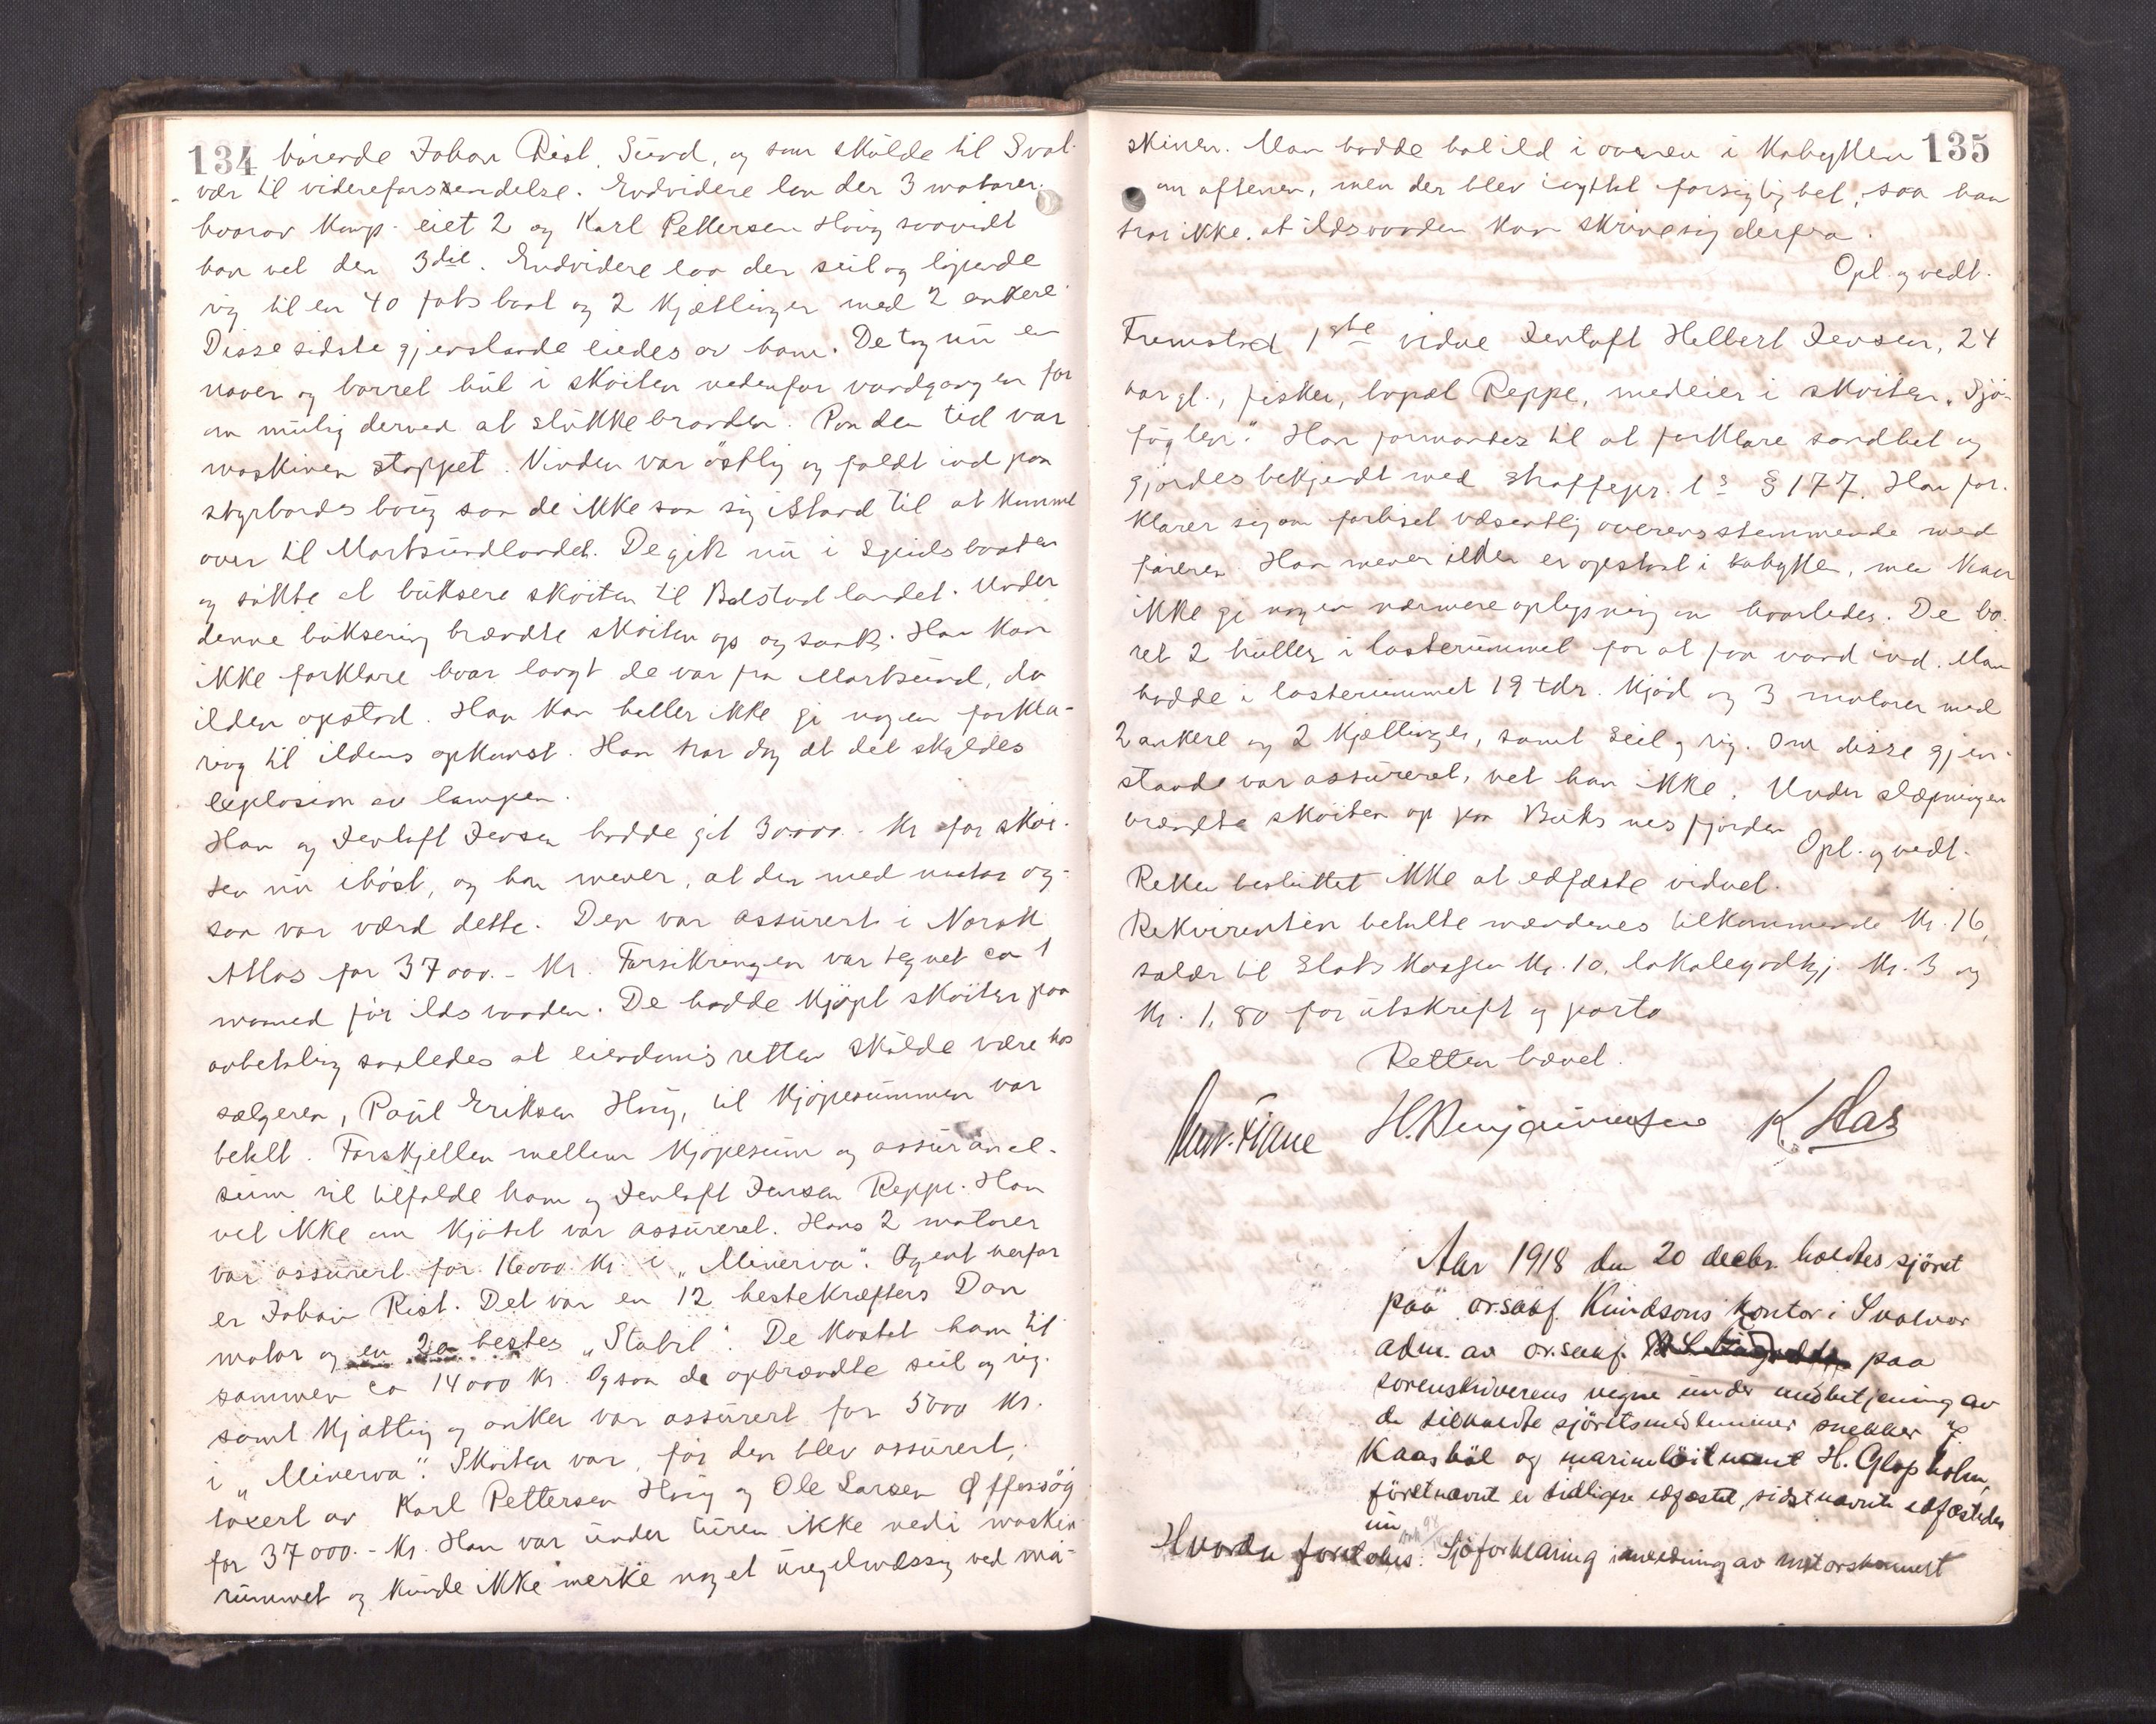 134 hörende Johan Rist, Sund, og som skulde til Svol-
vær til videreforsendelse. Endvidere laa der 3 motorer,
hvorav komp. eiet 2 og Karl Pettersen Haug saavidt
han vet den 3die. Endvidere laa der seil og löpende
rig til en 40 fots baat og 2 kjættinger med 2 ankere.
Disse sidste gjenstande eiedes av ham. De tog nu en
naver og borret hul i sköiten nedenfor vandgangen for
om mulig derved at slukke branden. Paa den tid var
maskinen stoppet. Vinden var östlig og faldt ind paa
styrbords boug saa de ikke saa sig istand til at komme
over til Mortsundlandet. De gik nu i spidsbaaten
og sökte at buksere sköiten til Balstad landet. Under
denne buksering brændte sköiten op og sank. Han kan
ikke forklare hvor langt de var fra Mortsund, da
ilden opstod. Han kan heller ikke gi nogen forkla-
ring til ildens opkomst. Han tror dog at det skyldes
explosion av lampen.
Han og Jentoft Jensen hadde git 30000.- Kr for sköi-
ten nu ihöst, og han mener, at den med motor og-
saa var værd dette. Den var assurert i Norsk
Atlas for 37000.- Kr. Forsikringen var tegnet ca 1
maaned för ildsvaaden. De hadde kjöpt sköiten paa
avbetaling saaledes at eiendomsretten skulde være hos
sælgeren, Paul Eriksen Haug, til kjöpesummen var
betalt. Forskjellen mellem kjöpesum og assurance-
sum vil tilfalde ham og Jentoft Jensen Reppe. Han
vet ikke om kjötet var assureret. Hans 2 motorer
var assurert for 16000 Kr i "Minerva". Agent herfor
er Johan Rist. Det var en 12 hestekræfters Dan
motor og en 20 hestes "Stabil". De kostet ham til
sammen ca 14000 Kr. Ogsaa de opbrændte seil og rig
samt kjætting og anker var assurert for 5000 Kr.
i "Minerva". Sköiten var, för den blev assurert,
taxert av Karl Pettersen Haug og Ole Larsen Offersög
for 37000.- Kr. Han var under turen ikke nedi maskin
rummet og kunde ikke merke noget uregelmæssig ved ma-
135
skinen. Man hadde hat ild i ovnen i kabytten
om aftenen, men der blev iagttat forsigtighet, saa han
tror ikke, at ildsvaaden kan skrive sig derfra.
Opl. og vedt.
Fremstod 1ste vidne Jentoft Helbert Jensen, 24
aar gl., fisker, bopæl Reppe, medeier i sköiten "Sjö-
fuglen". Han formantes til at forklare sandhet og
gjordes bekjendt med straffepr. l's § 177. Han for-
klarer sig om forliset væsentlig overensstemmende med
föreren. Han mener ilden er opstaat i kabytten, men kan
ikke gi nogen nærmere oplysning om hvorledes. De bo-
ret 2 huller i lasterummet for at faa vand ind. Man
hadde i lasterummet 19 tdr. kjöd og 3 motorer med
2 ankere og 2 kjættinger, samt seil og rig. Om disse gjen-
stande var assureret, vet han ikke. Under slæpningen
brændte sköiten op paa Buksnesfjorden
Opl. og vedt.
Retten besluttet ikke at edfæste vidnet.
Rekvirenten betalte mændenes tilkommende Kr. 16,
salær til Statskassen Kr. 10, lokalegodtgj. Kr. 3 og
Kr. 1,80 for utskrift og porto
Retten hævet.
H. Benjaminsen K. Aas
Aar 1918 den 20 decbr. holdtes sjöret
paa orsakf. Knudsons kontor i Svolvær
adm. av or.sakf. paa
sorenskriverens vegne under medbetjening av
de tilkaldte sjöretsmedlemmer snekker
Kaasböl og marinelöitnant H. Glapholm,
förstnævnt er tidligere edfæstet, sidstnævnte edfæstedes
nu
Hvorda foretokes: Sjöforklaring i anledning av motorskonnert